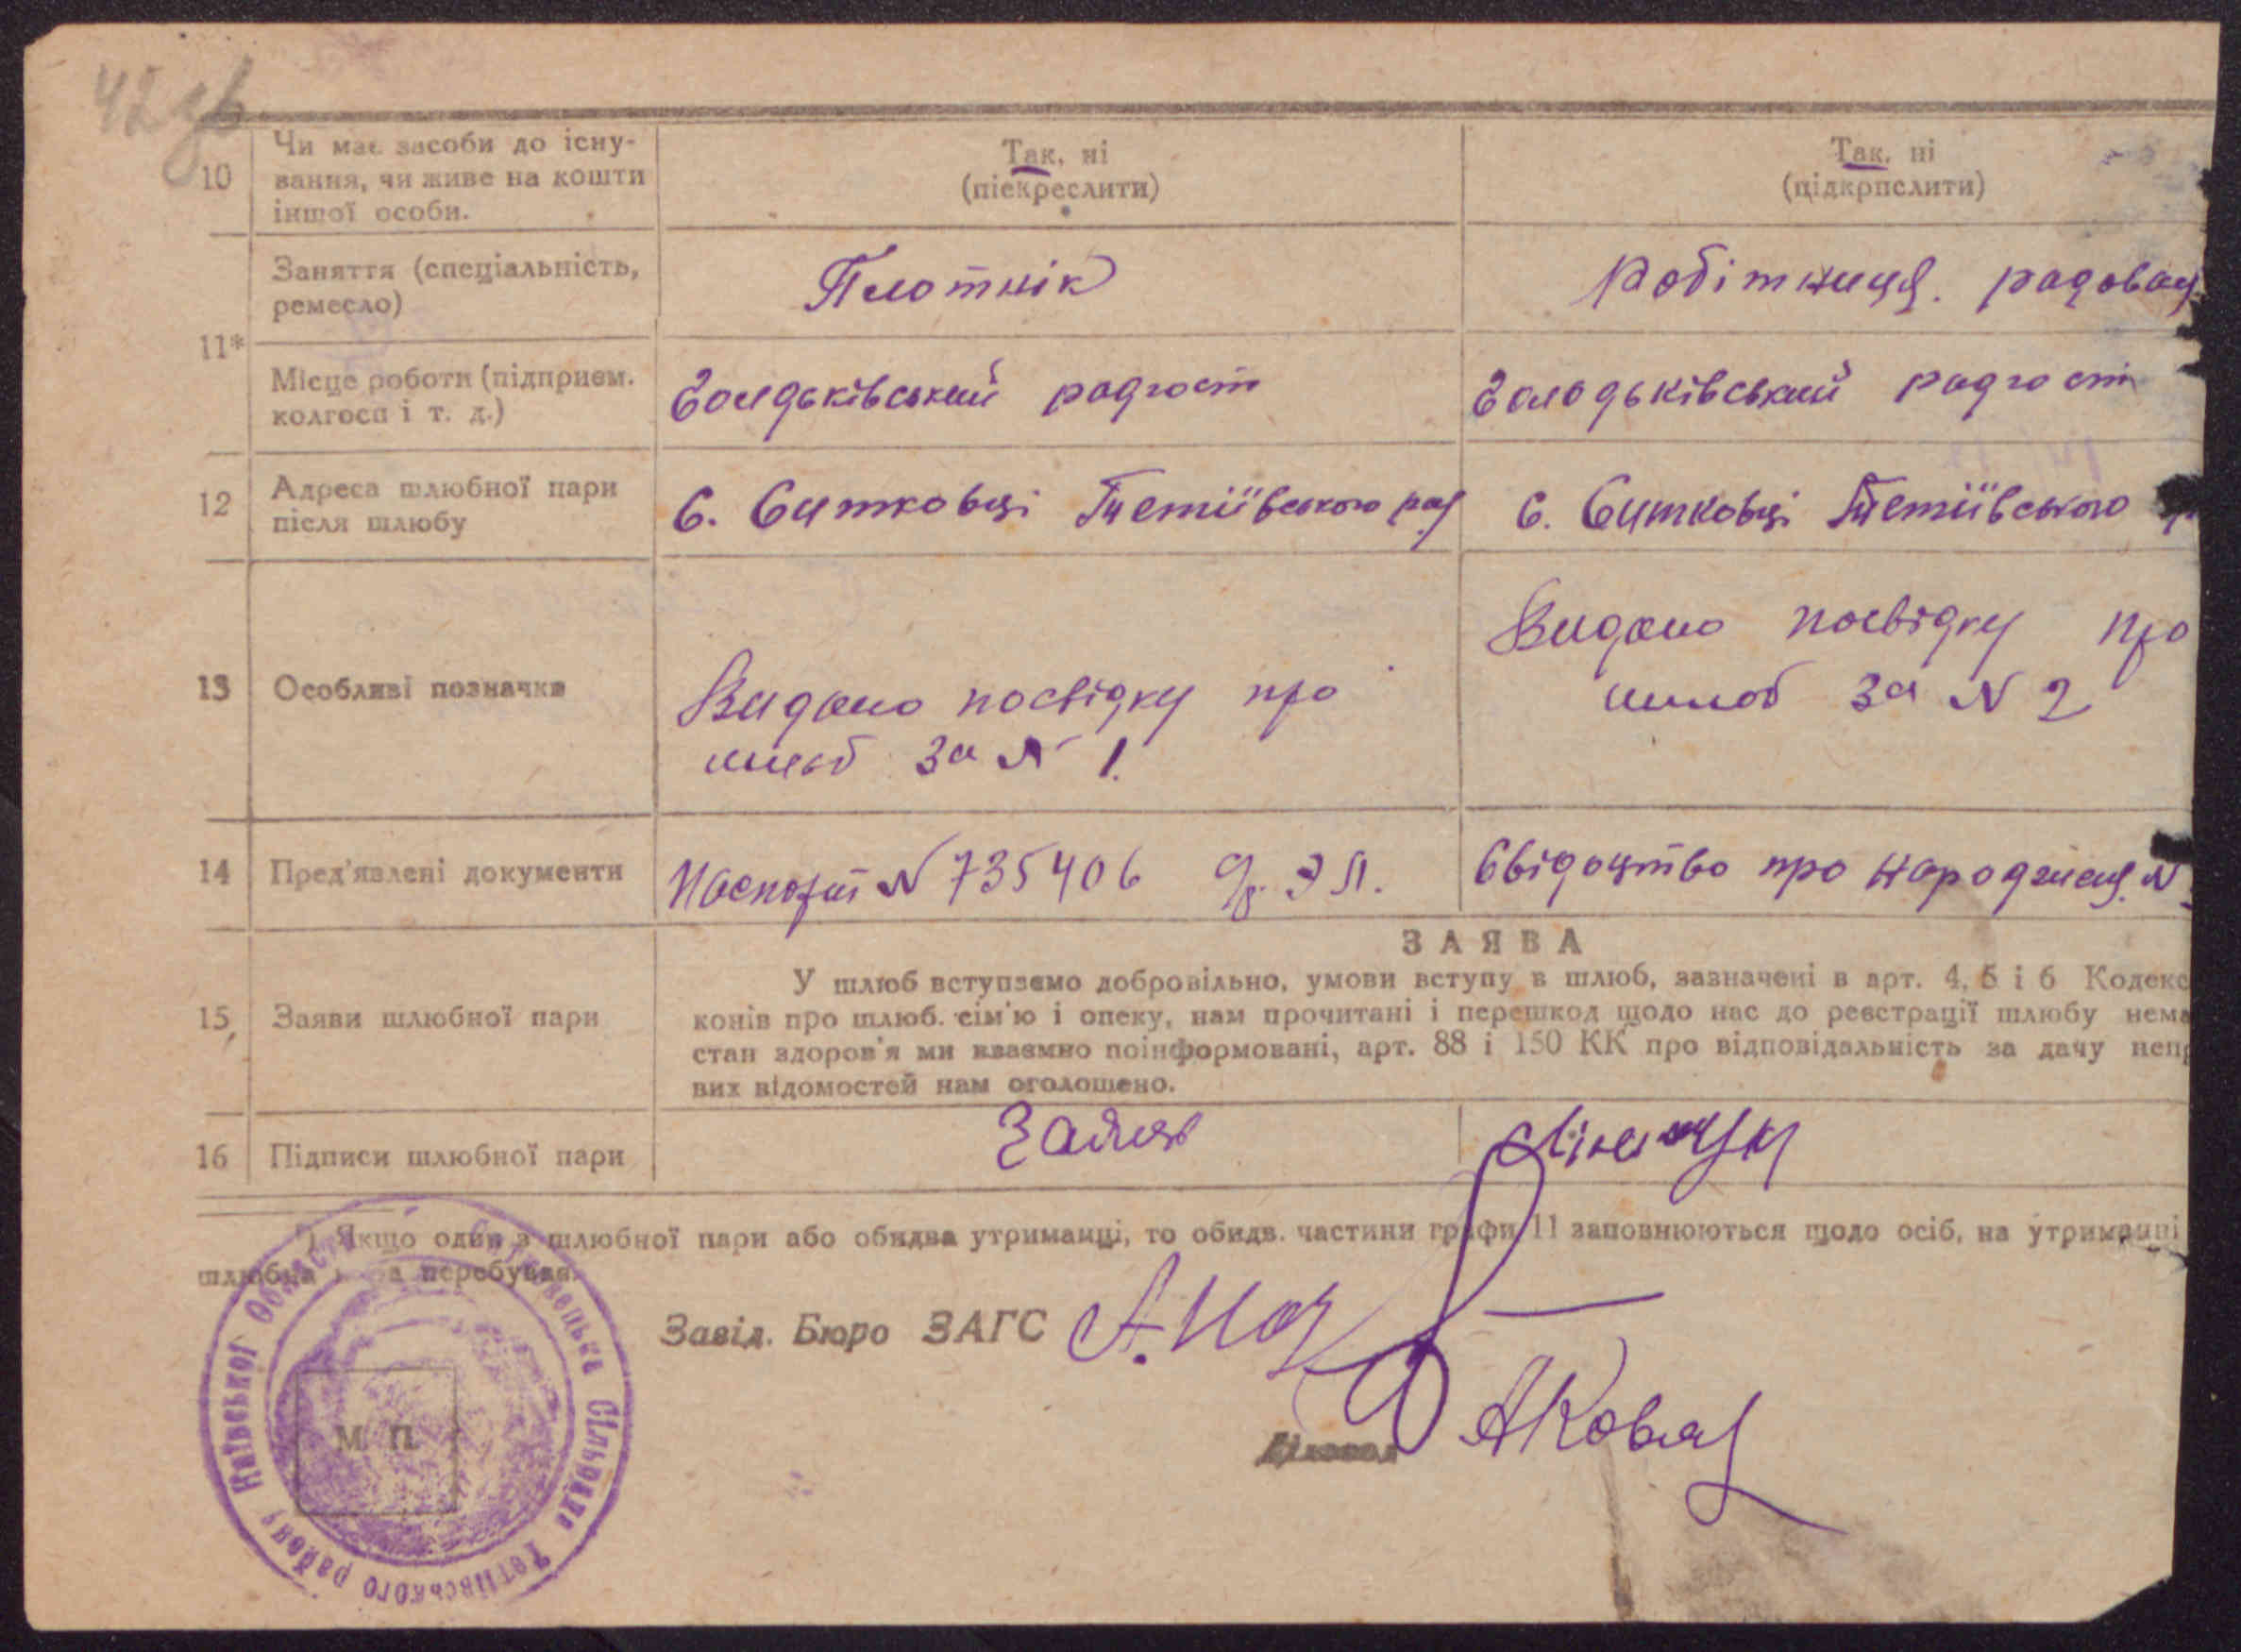 42 зв
10
Чи має засоби до існу-
вання, чи живе на кошти
іншої особи.
Так, ні
(піекреслити)
Так, ні
(підкрпслити)
11*
Заняття (спеціальність,
ремесло)
Плотнік
Робітниця. радовая
Місце роботи (підприєм.
колгосп і т. д.)
радгост
радгост
12
Адреса шлюбної пари
після шлюбу
С. Ситковці Тетіївського рай
С. Ситковці Тетіївського
13
Особливі позначки
Видано посвідку про
шлюб за N 1.
Видано посвідку про
шлюб за N 2
14
Пред'явлені документи
Паспорт N 735406
Свідоцтво про народження N
15
Заяви шлюбної пари
ЗАЯВА
У шлюб вступаємо добровільно, умови вступу в шлюб, зазначені в арт. 4, 5 і 6 Кодекс
конів про шлюб. сім'ю і опеку, нам прочитані і перешкод щодо нас до реєстрації шлюбу нема
стан здоров'я ми взаємно поінформовані, арт. 88 і 150 КК про відповідальність за дачу непр
вих відомостей нам оголошено.
16
Підписи шлюбної пари
Заяць
*) Якщо один з шлюбної пари або обидва утриманці, то обидв. частини графи 11 заповнюються щодо осіб, на утриманні
шлюбна перебуває.
Завід. Бюро ЗАГС
Діловод
АКовал
М. П.
Сільрада Тетіївського району Київської Області